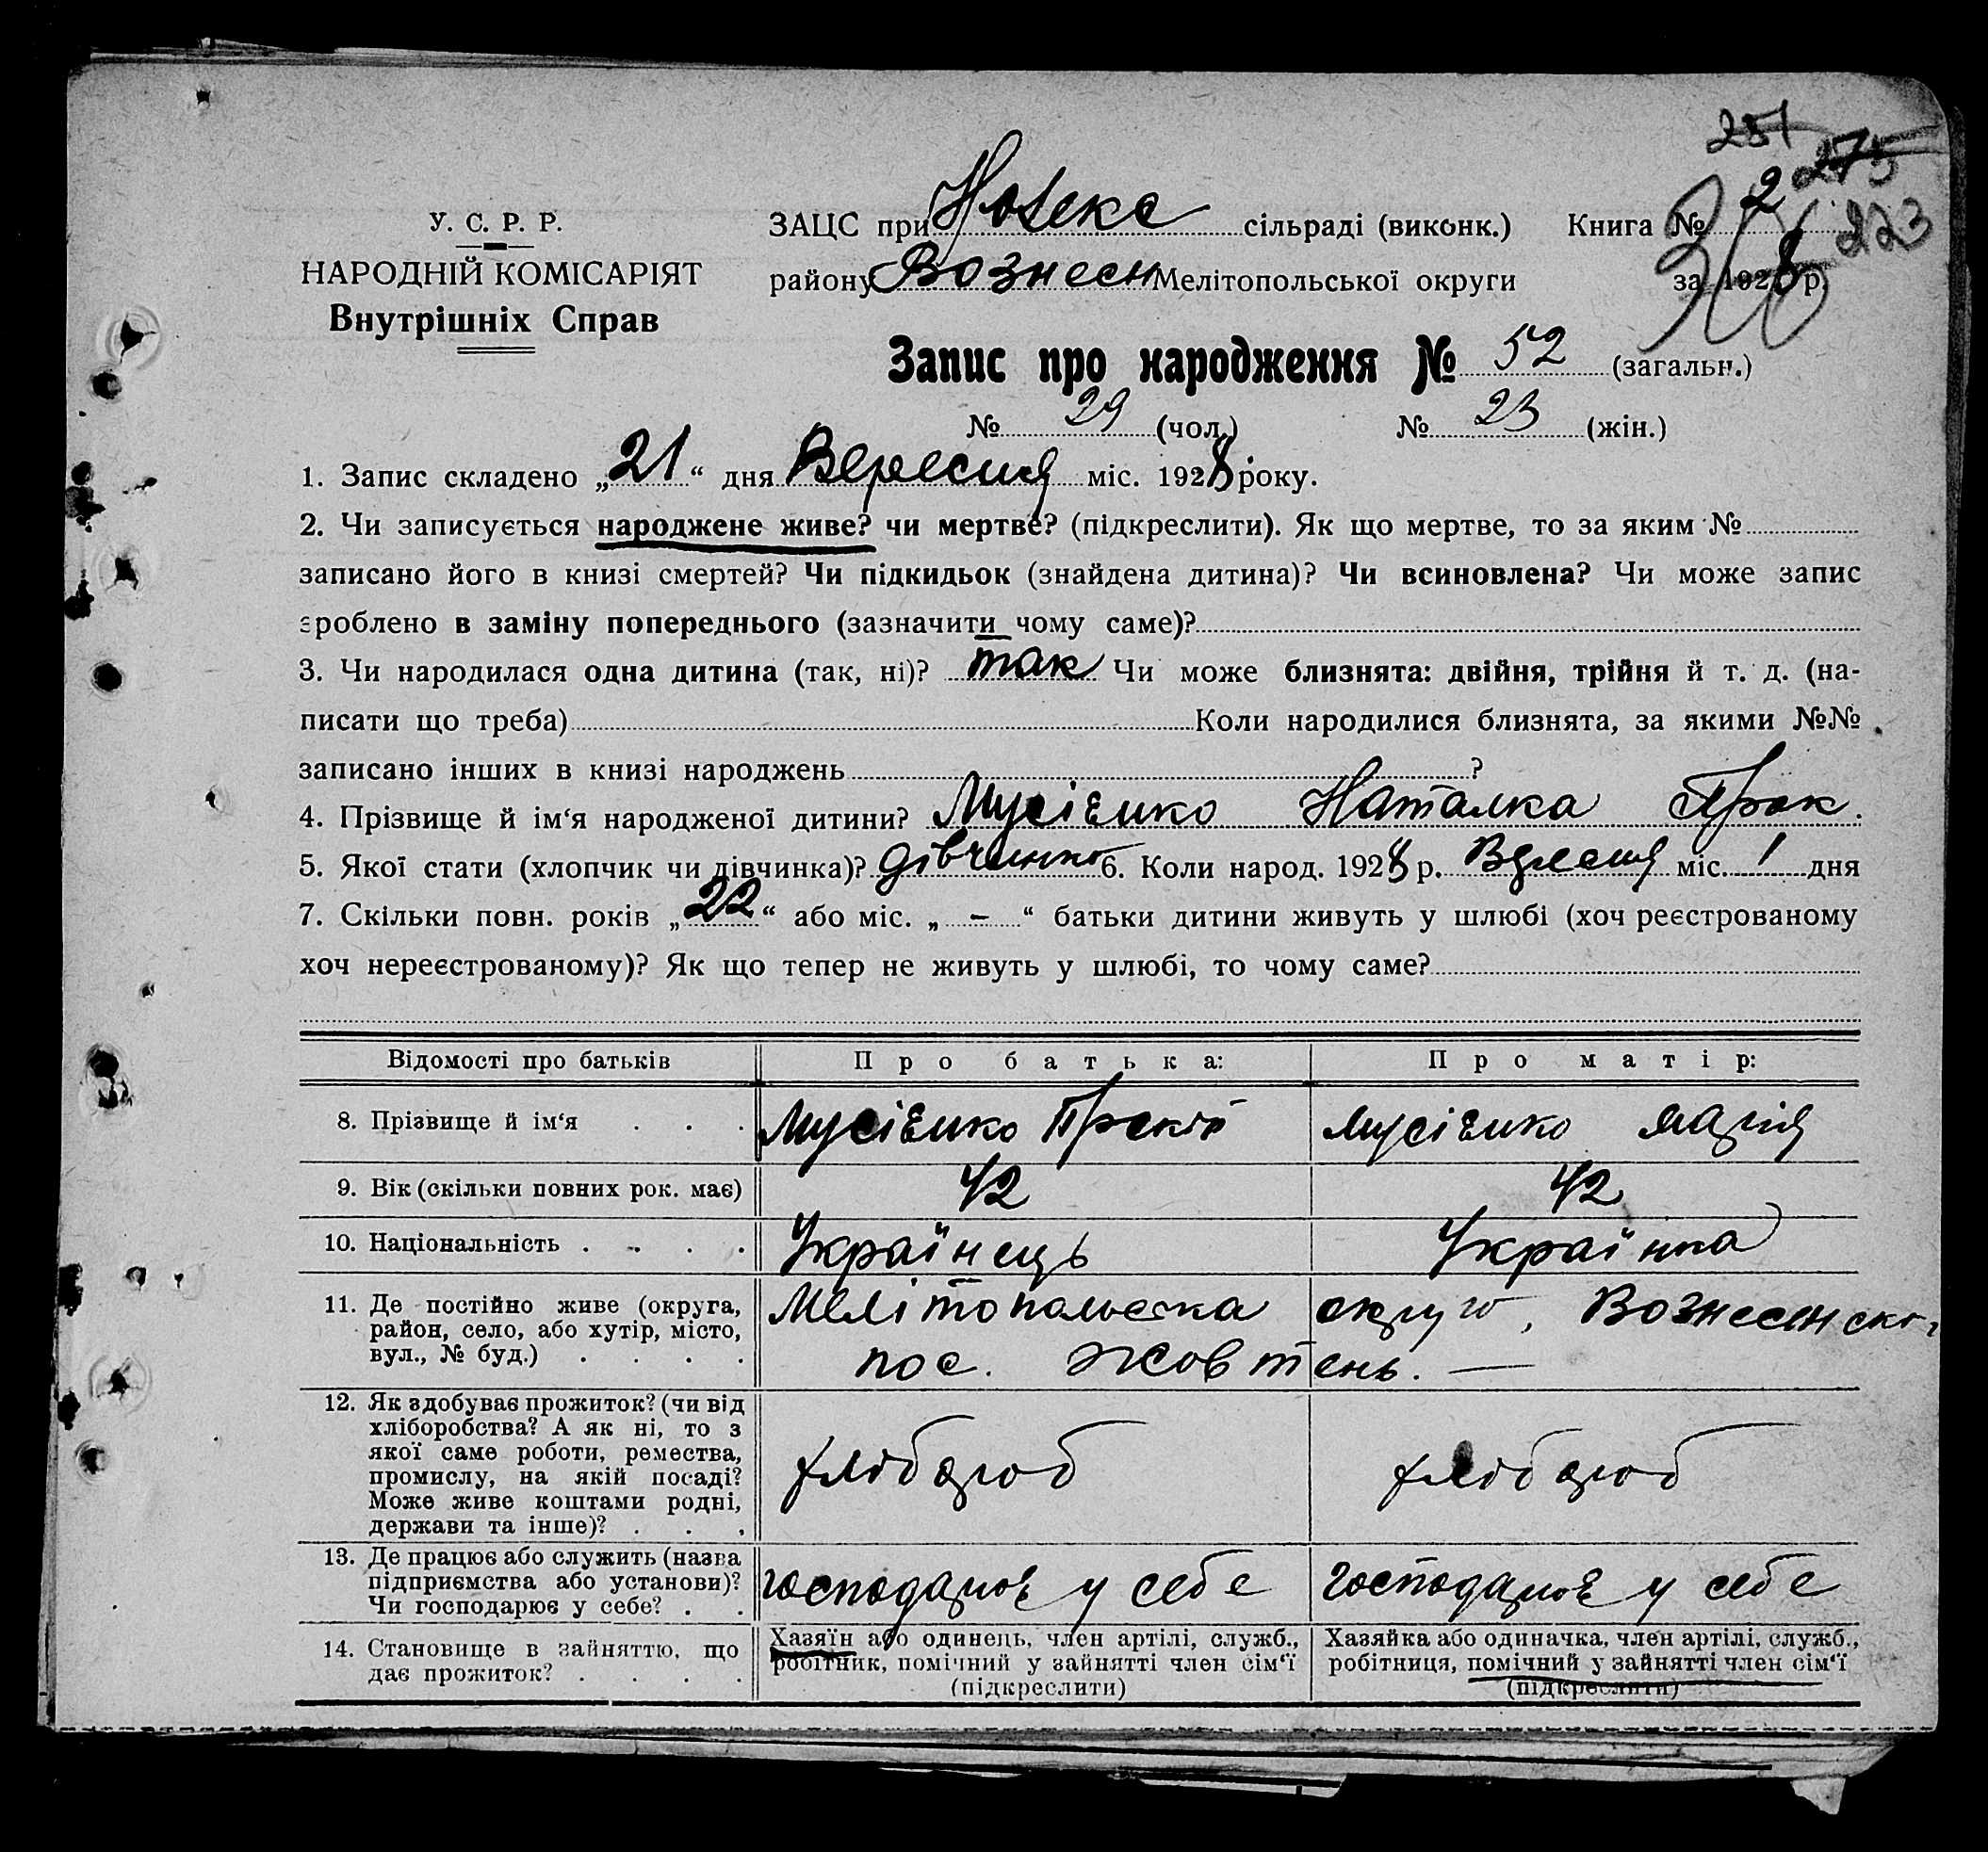 251
275
223
У. С. Р. Р.
НАРОДНІЙ КОМІСАРІЯТ
Внутрішніх Справ
ЗАЦС при сільраді (виконк.) Книга № 2
району Вознесен Мелітопольської округи за 1928 р.
Запис про народження № 52 (загальн.)
№ 29 (чол.) № 23 (жін.)
1. Запис складено „21“ дня Вересня міс. 1928 року.
2. Чи записується народжене живе? чи мертве? (підкреслити). Як що мертве, то за яким №
записано його в книзі смертей? Чи підкидьок (знайдена дитина)? Чи всиновлена? Чи може запис
зроблено в заміну попереднього (зазначити чому саме)?
3. Чи народилася одна дитина (так, ні)? так Чи може близнята: двійня, трійня й т. д. (на-
писати що треба) Коли народилися близнята, за якими №№
записано інших в книзі народжень ?
4. Прізвище й ім‘я народженої дитини? Мусієнко Наталка Прок.
5. Якої стати (хлопчик чи дівчинка)? дівчинка 6. Коли народ. 1928 р. Вересня міс. 1 дня
7. Скільки повн. років „22“ або міс. „ – “ батьки дитини живуть у шлюбі (хоч реєстрованому
хоч нереєстрованому)? Як що тепер не живуть у шлюбі, то чому саме?
Відомості про батьків Про батька: Про матір:
8. Прізвище й ім‘я . . . Мусієнко Мусієнко Марія
9. Вік (скільки повних рок. має) 42 42
10. Національність . . . . Українець Українка
11. Де постійно живе (округа, район, село, або хутір, місто, вул., № буд.) . . . .
Мелітопольська округа, Вознесенськ.
пос. Жовтень. —
12. Як здобуває прожиток? (чи від
хліборобства? А як ні, то з
якої саме роботи, ремества,
промислу, на якій посаді?
Може живе коштами родні,
держави та інше)? . . .
хлібороб хлібороб
13. Де працює або служить (назва
підприємства або установи)?
Чи господарює у себе? . .
господарює у себе господарює у себе
14. Становище в зайняттю, що
дає прожиток? . . . .
Хазяїн або одинець, член артілі, служб.,
робітник, помічний у зайнятті член сім‘ї
(підкреслити)
Хазяйка або одиначка, член артілі, служб.,
робітниця, помічний у зайнятті член сім‘ї
(підкреслити)